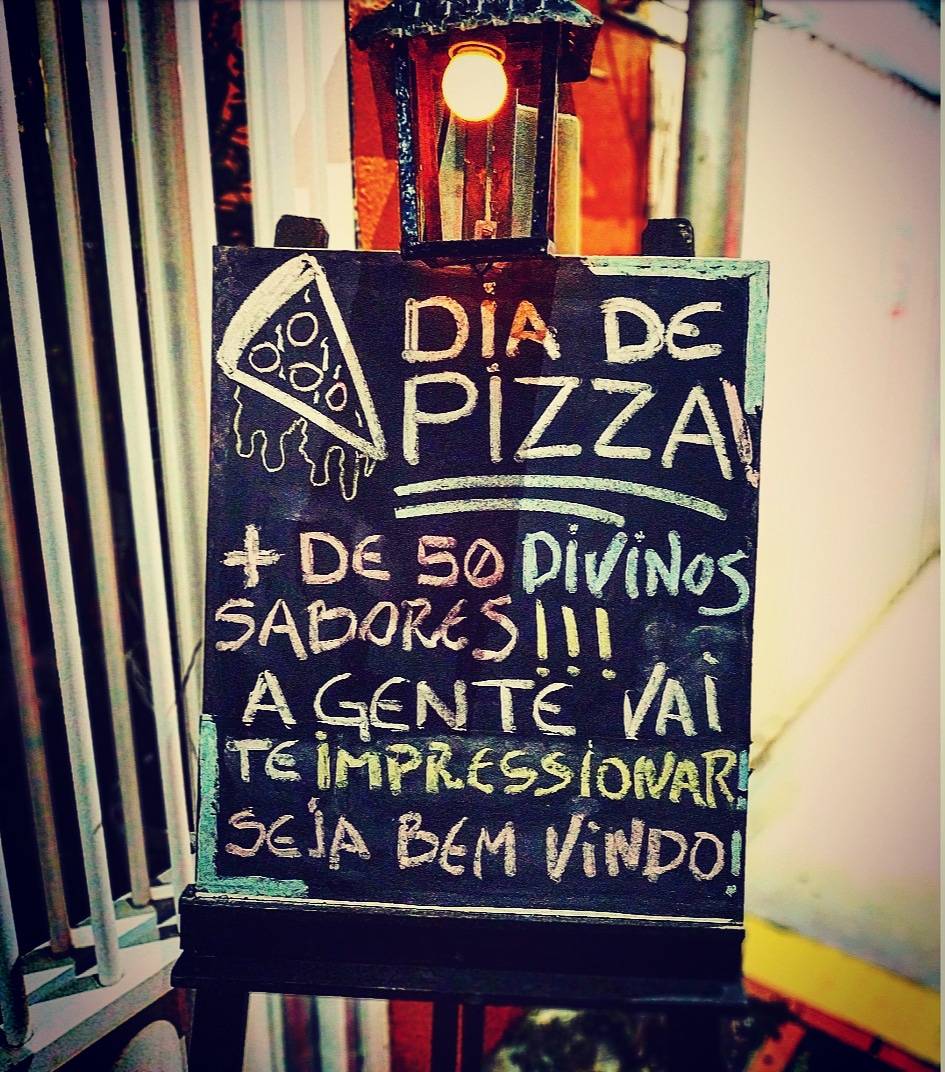 DIA DE
PIZZA!
+ DE 50 DIVINOS
SABORES!!!
A GENTE VAI
TE IMPRESSIONAR!
SEJA BEM VINDO!